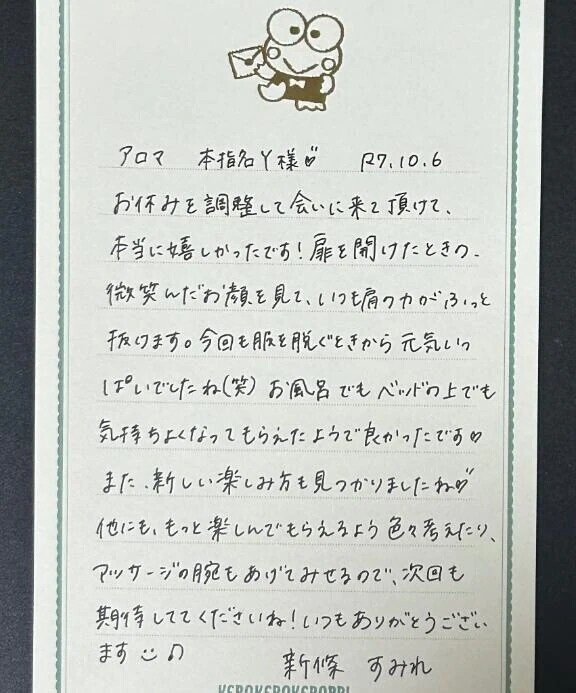 アロマ 本指名Y様♡ R7.10.6
お休みを調整して会いに来て頂けて、
本当に嬉しかったです！扉を開けたときの、
微笑んだお顔を見て、いつも肩の力がふっと
抜けます。今回も服を脱ぐときから元気いっ
ぱいでしたね(笑) お風呂でもベッドの上でも
気持ちよくなってもらえたようで良かったです♡
また、新しい楽しみ方も見つかりましたね♡
他にも、もっと楽しんでもらえるよう色々考えたり、
マッサージの腕もあげてみせるので、次回も
期待しててくださいね！いつもありがとうござい
ます☺♫ 新條 すみれ
KEROKEROKEROPPI